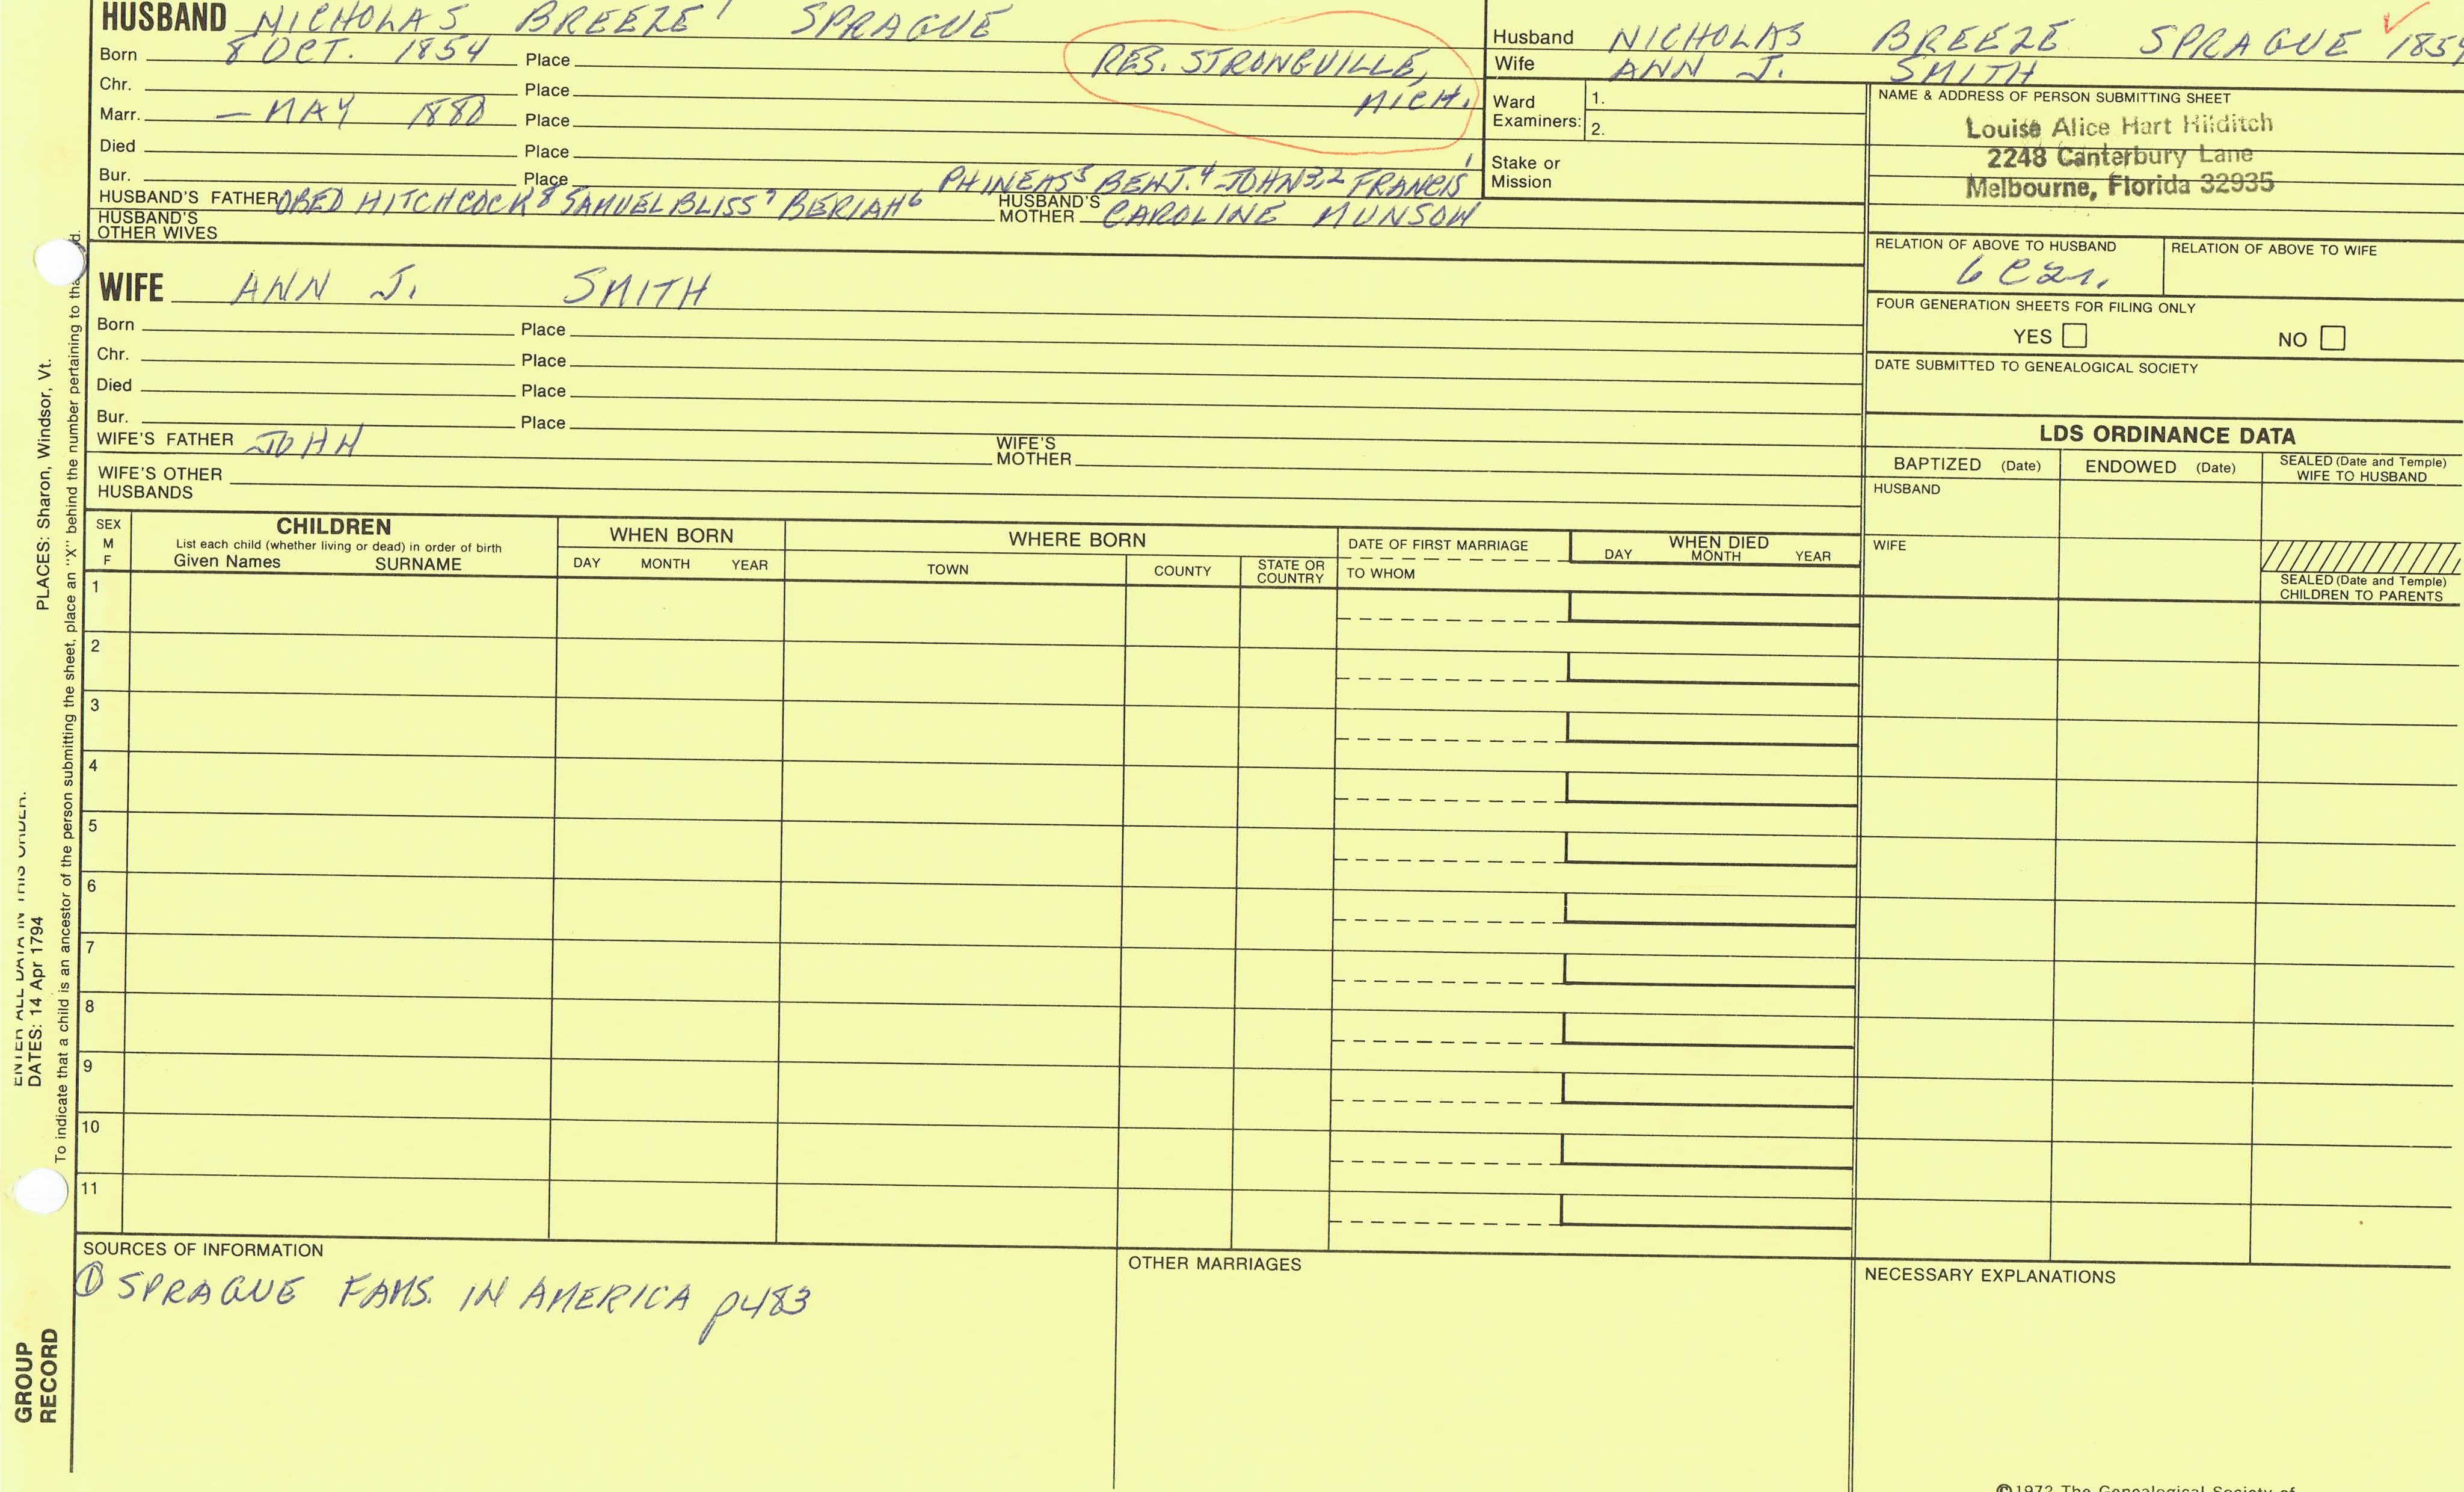 HUSBAND NICHOLAS BREEZE' SPRAGUE
Born 8 OCT. 1854 Place RES. STRONGVILLE,
Chr. Place MICH.
Marr. — MAY 1880 Place
Died Place
Bur. Place PHINEAS⁵ BENJ.⁴ JOHN³,² FRANCIS¹
HUSBAND'S FATHER OBED HITCHCOCK⁸ SAMUEL BLISS⁷ BERIAH⁶ HUSBAND'S MOTHER CAROLINE MUNSON
HUSBAND'S OTHER WIVES
Husband NICHOLAS BREEZE SPRAGUE ✓
Wife ANN J. SMITH
Ward Examiners: 1.
2.
Stake or Mission
NAME & ADDRESS OF PERSON SUBMITTING SHEET
Louise Alice Hart Hilditch
2248 Canterbury Lane
Melbourne, Florida 32935
RELATION OF ABOVE TO HUSBAND RELATION OF ABOVE TO WIFE
6 C2r.
FOUR GENERATION SHEETS FOR FILING ONLY
YES NO
DATE SUBMITTED TO GENEALOGICAL SOCIETY
WIFE ANN J. SMITH
Born Place
Chr. Place
Died Place
Bur. Place
WIFE'S FATHER JOHN WIFE'S MOTHER
WIFE'S OTHER HUSBANDS
LDS ORDINANCE DATA
BAPTIZED (Date) ENDOWED (Date) SEALED (Date and Temple) WIFE TO HUSBAND
HUSBAND
WIFE
SEALED (Date and Temple) CHILDREN TO PARENTS
SEX M F
CHILDREN
List each child (whether living or dead) in order of birth
Given Names SURNAME
WHEN BORN
DAY MONTH YEAR
WHERE BORN
TOWN COUNTY STATE OR COUNTRY
DATE OF FIRST MARRIAGE
TO WHOM
WHEN DIED
DAY MONTH YEAR
1
2
3
4
5
6
7
8
9
10
11
SOURCES OF INFORMATION
① SPRAGUE FAMS. IN AMERICA p483
OTHER MARRIAGES
NECESSARY EXPLANATIONS
ENTER ALL DATA IN THIS ORDER.
DATES: 14 Apr 1794 PLACES: Sharon, Windsor, Vt.
To indicate that a child is an ancestor of the person submitting the sheet, place an "X" behind the number pertaining to
GROUP
RECORD
©1972 The Genealogical Society of